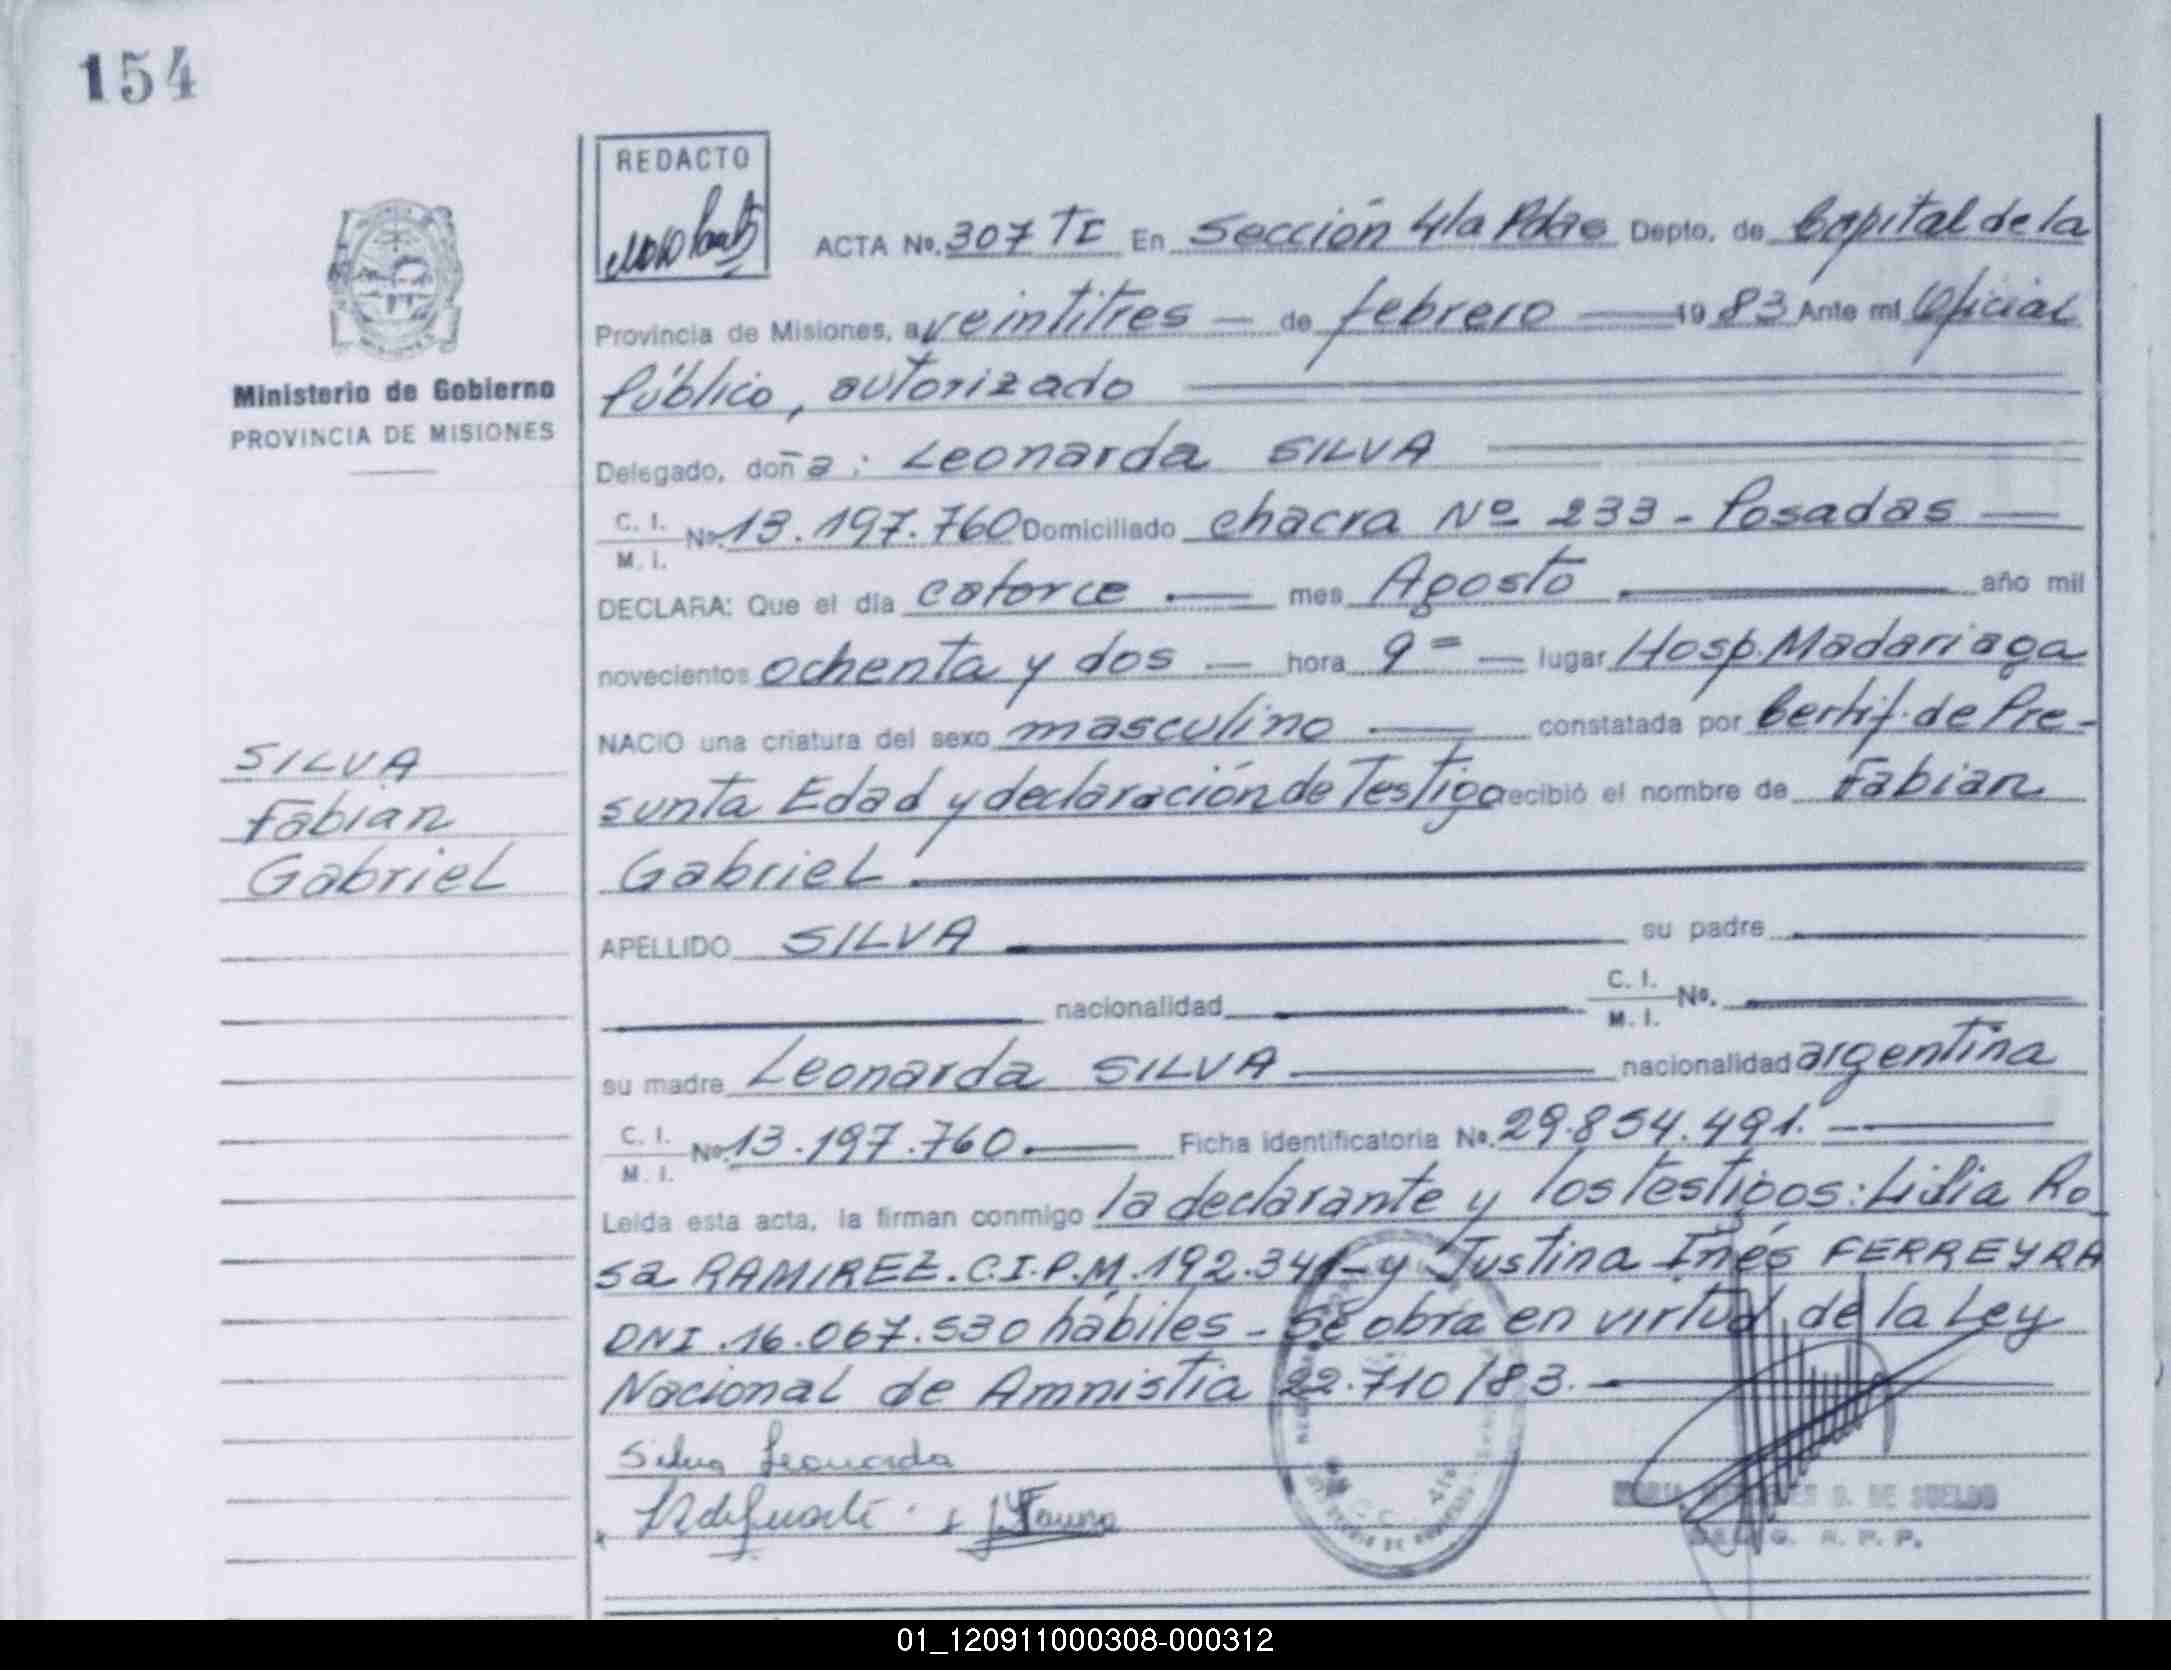 154
REDACTO
ACTA No. 307 TI En Sección 4ta Pdas Depto. de Capital de la
Provincia de Misiones, a veintitres — de febrero — 1983 Ante mi Oficial
Público, autorizado
Delegado, doña: Leonarda SILVA
C. I. / M. I. No. 13.197.760 Domiciliado chacra Nº 233 - Posadas —
DECLARA: Que el día catorce — mes Agosto — año mil
novecientos ochenta y dos — hora 9= — lugar Hosp. Madariaga
NACIO una criatura del sexo masculino — constatada por Certif. de Pre-
sunta Edad y declaración de Testigo recibió el nombre de Fabian
Gabriel
APELLIDO SILVA — su padre —
— nacionalidad — C. I. / M. I. No. —
su madre Leonarda SILVA — nacionalidad argentina
C. I. / M. I. No. 13.197.760. — Ficha identificatoria No. 29.854.491. —
Leida esta acta, la firman conmigo la declarante y los testigos: Lidia Ro
sa RAMIREZ. C.I.P.M. 192.341 - y Justina Inés FERREYRA
DNI. 16.067.530 hábiles - Se obra en virtud de la Ley
Nacional de Amnistia 22.710/83. —
Silva Leonarda
DE SUELDO
R. P. P.
Ministerio de Gobierno
PROVINCIA DE MISIONES
SILVA
Fabian
Gabriel
01_120911000308-000312